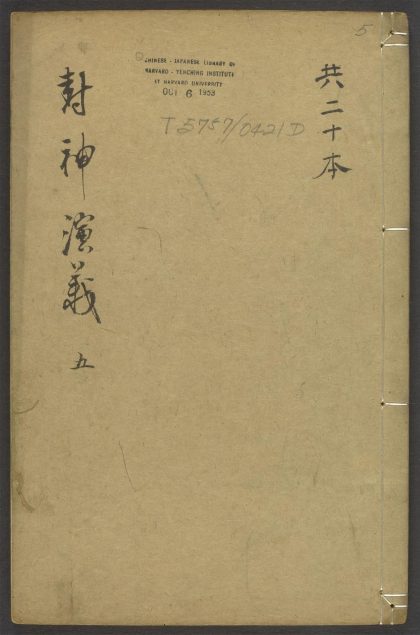 共二十本
5
CHINESE - JAPANESE LIBRARY OF
HARVARD - YENCHING INSTITUTE
AT HARVARD UNIVERSITY
OCT 6 1953
T 5757/0421D
封神演義 五